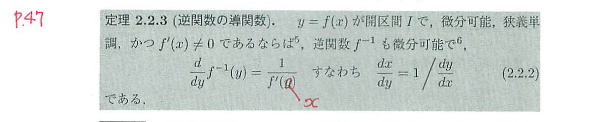 p.47
定理 2.2.3 (逆関数の導関数). y = f(x) が開区間 I で, 微分可能, 狭義単
調, かつ f′(x) ≠ 0 であるならば⁵, 逆関数 f⁻¹ も微分可能で⁶,
d/dy f⁻¹(y) = 1/f′(y) すなわち dx/dy = 1 / dy/dx (2.2.2)
x
である.